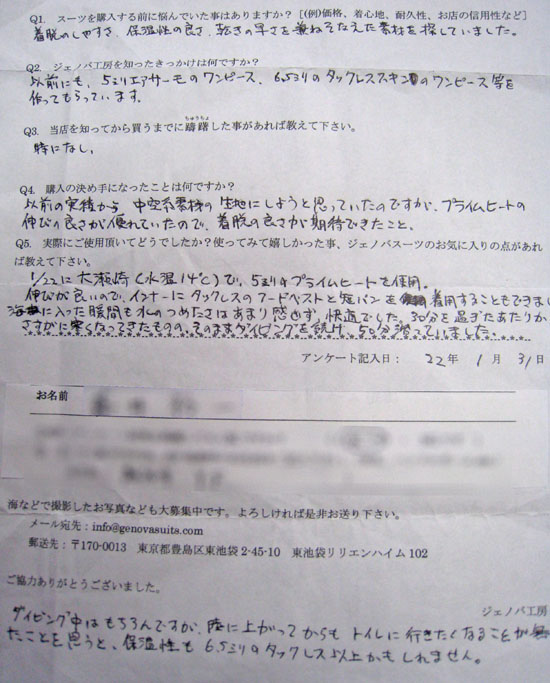 Q1. スーツを購入する前に悩んでいた事はありますか？ [(例)価格、着心地、耐久性、お店の信用性など]
着脱のしやすさ、保温性の良さ、乾きの早さを兼ねそなえた素材を探していました。
Q2. ジェノバ工房を知ったきっかけは何ですか？
以前にも、5ミリエアサーモのワンピース、6.5ミリのタックレススキンのワンピース等を
作ってもらっています。
Q3. 当店を知ってから買うまでに躊躇した事があれば教えて下さい。
ちゅうちょ
特になし。
Q4. 購入の決め手になったことは何ですか？
以前の実績から 中空系素材の生地にしようと思っていたのですが、プライムヒートの
伸びの良さが優れていたので、着脱の良さが期待できたこと。
Q5. 実際にご使用頂いてどうでしたか？使ってみて嬉しかった事、ジェノバスーツのお気に入りの点があれ
ば教えて下さい。
1/22に大瀬崎(水温14℃)で、5ミリのプライムヒートを使用。
伸びが良いので、インナーにタックレスのフードベストと短パンを着用することもできまし
海に入った瞬間も水のつめたさはあまり感せず、快適でした。30分を過ぎたあたりか
さすがに寒くなってきたものの、そのままダイビングを続け、50分潜っていました。
アンケート記入日： 22年 1月 31日
お名前
海などで撮影したお写真なども大募集中です。よろしければ是非お送り下さい。
メール宛先：info@genovasuits.com
郵送先：〒170-0013 東京都豊島区東池袋2-45-10 東池袋リリエンハイム102
ご協力ありがとうございました。
ジェノバ工房
ダイビング中はもちろんですが、陸に上がってからもトイレに行きたくなることが無
たことを思うと、保温性も6.5ミリのタックレス以上かもしれません。